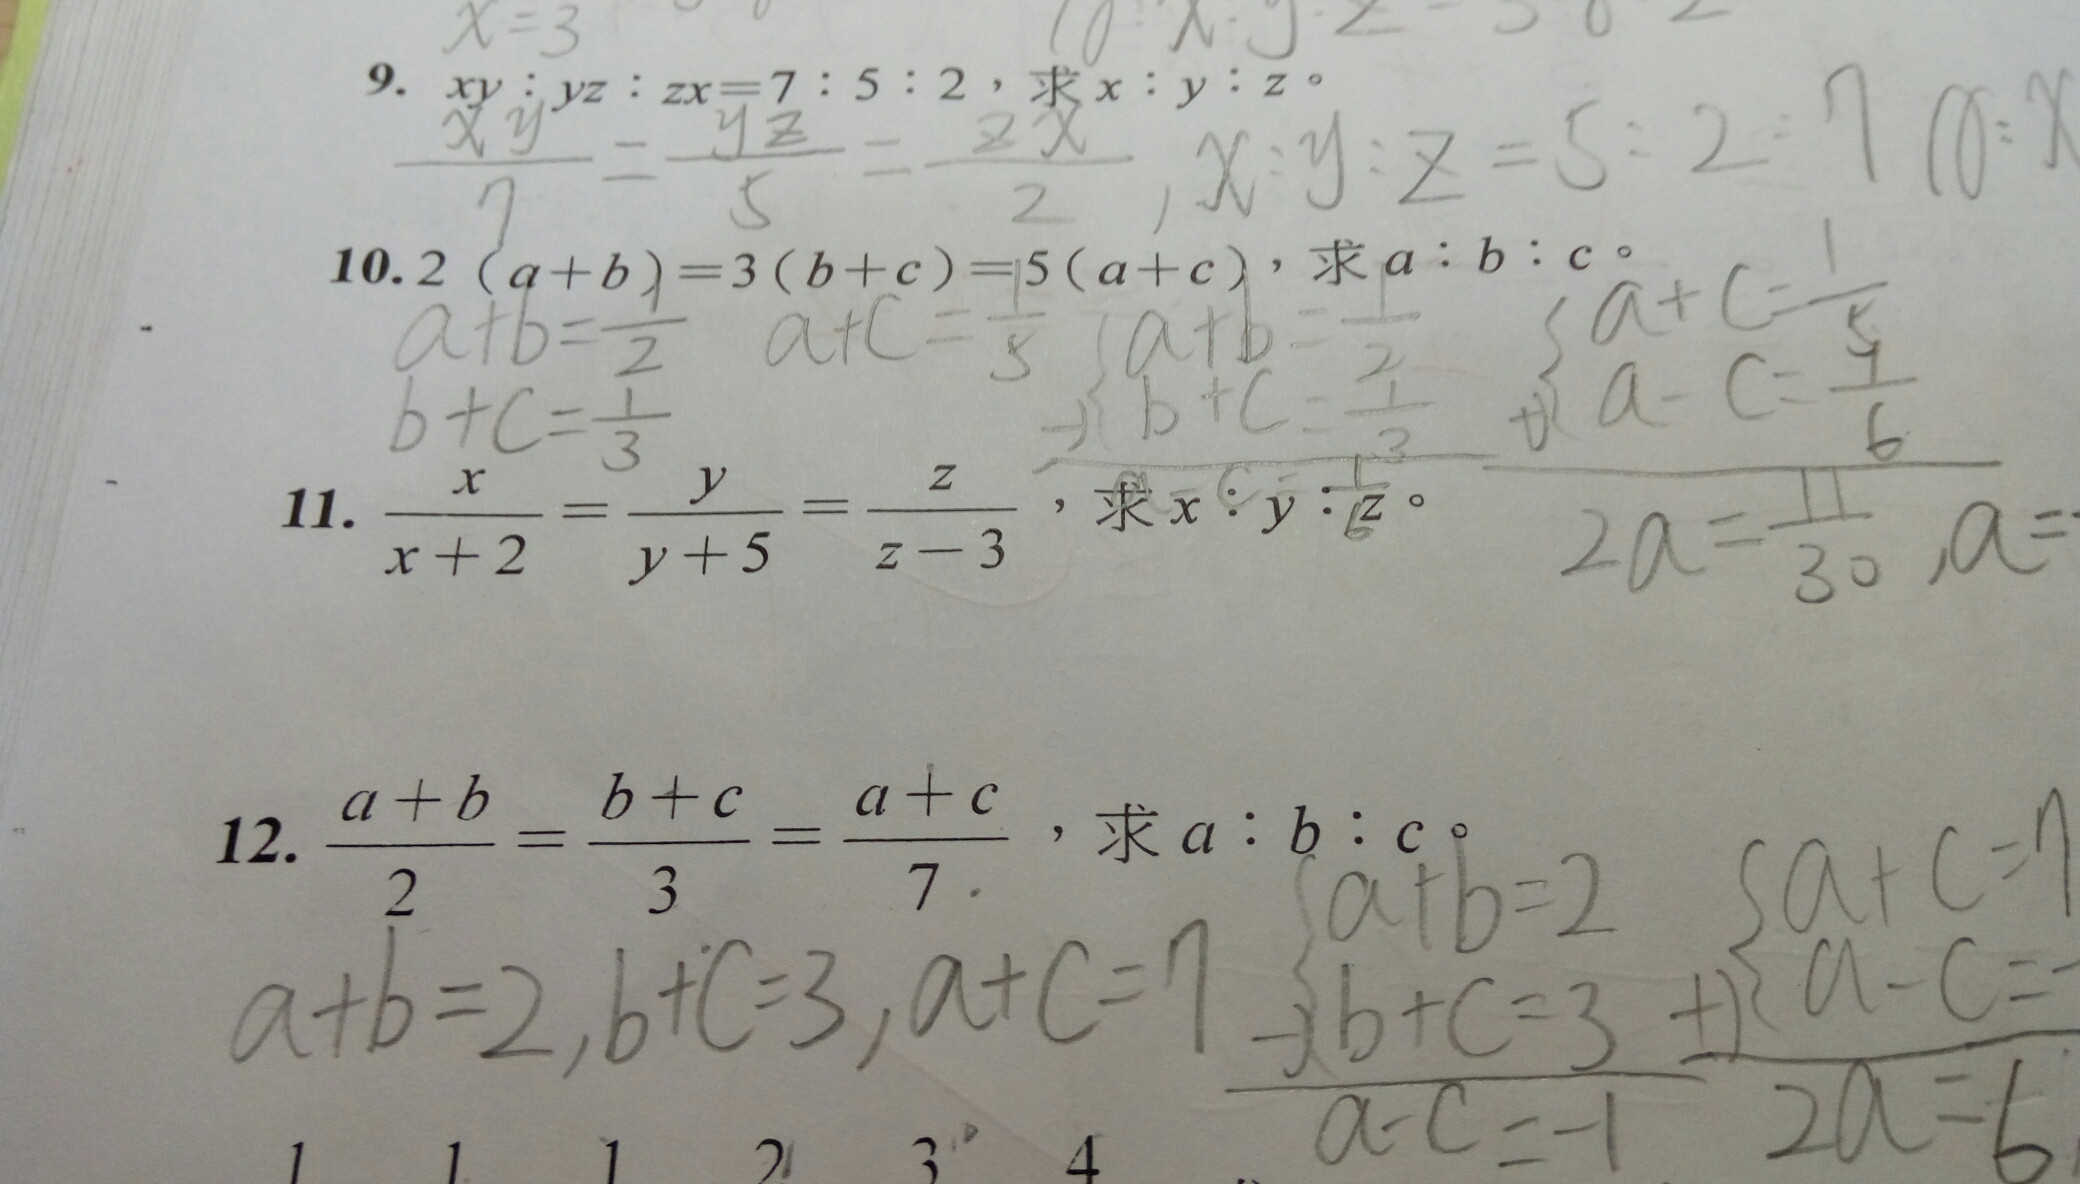 x=3
9. xy：yz：zx=7：5：2，求x：y：z。
xy/7 = yz/5 = zx/2 , x:y:z=5:2:7
10. 2（a+b）=3（b+c）=5（a+c），求a：b：c。
a+b=1/2 a+c=1/5 a+b=1/2 a+c=1/5
b+c=1/3 -) b+c=1/3 +) a-c=1/6
a-c=1/6 2a=11/30 , a=
11. x/(x+2) = y/(y+5) = z/(z-3)，求x：y：z。
12. (a+b)/2 = (b+c)/3 = (a+c)/7，求a：b：c。
a+b=2 a+c=7
a+b=2, b+c=3, a+c=7 -) b+c=3 +) a-c=-
a-c=-1 2a=6
1 1 1 2 3 4